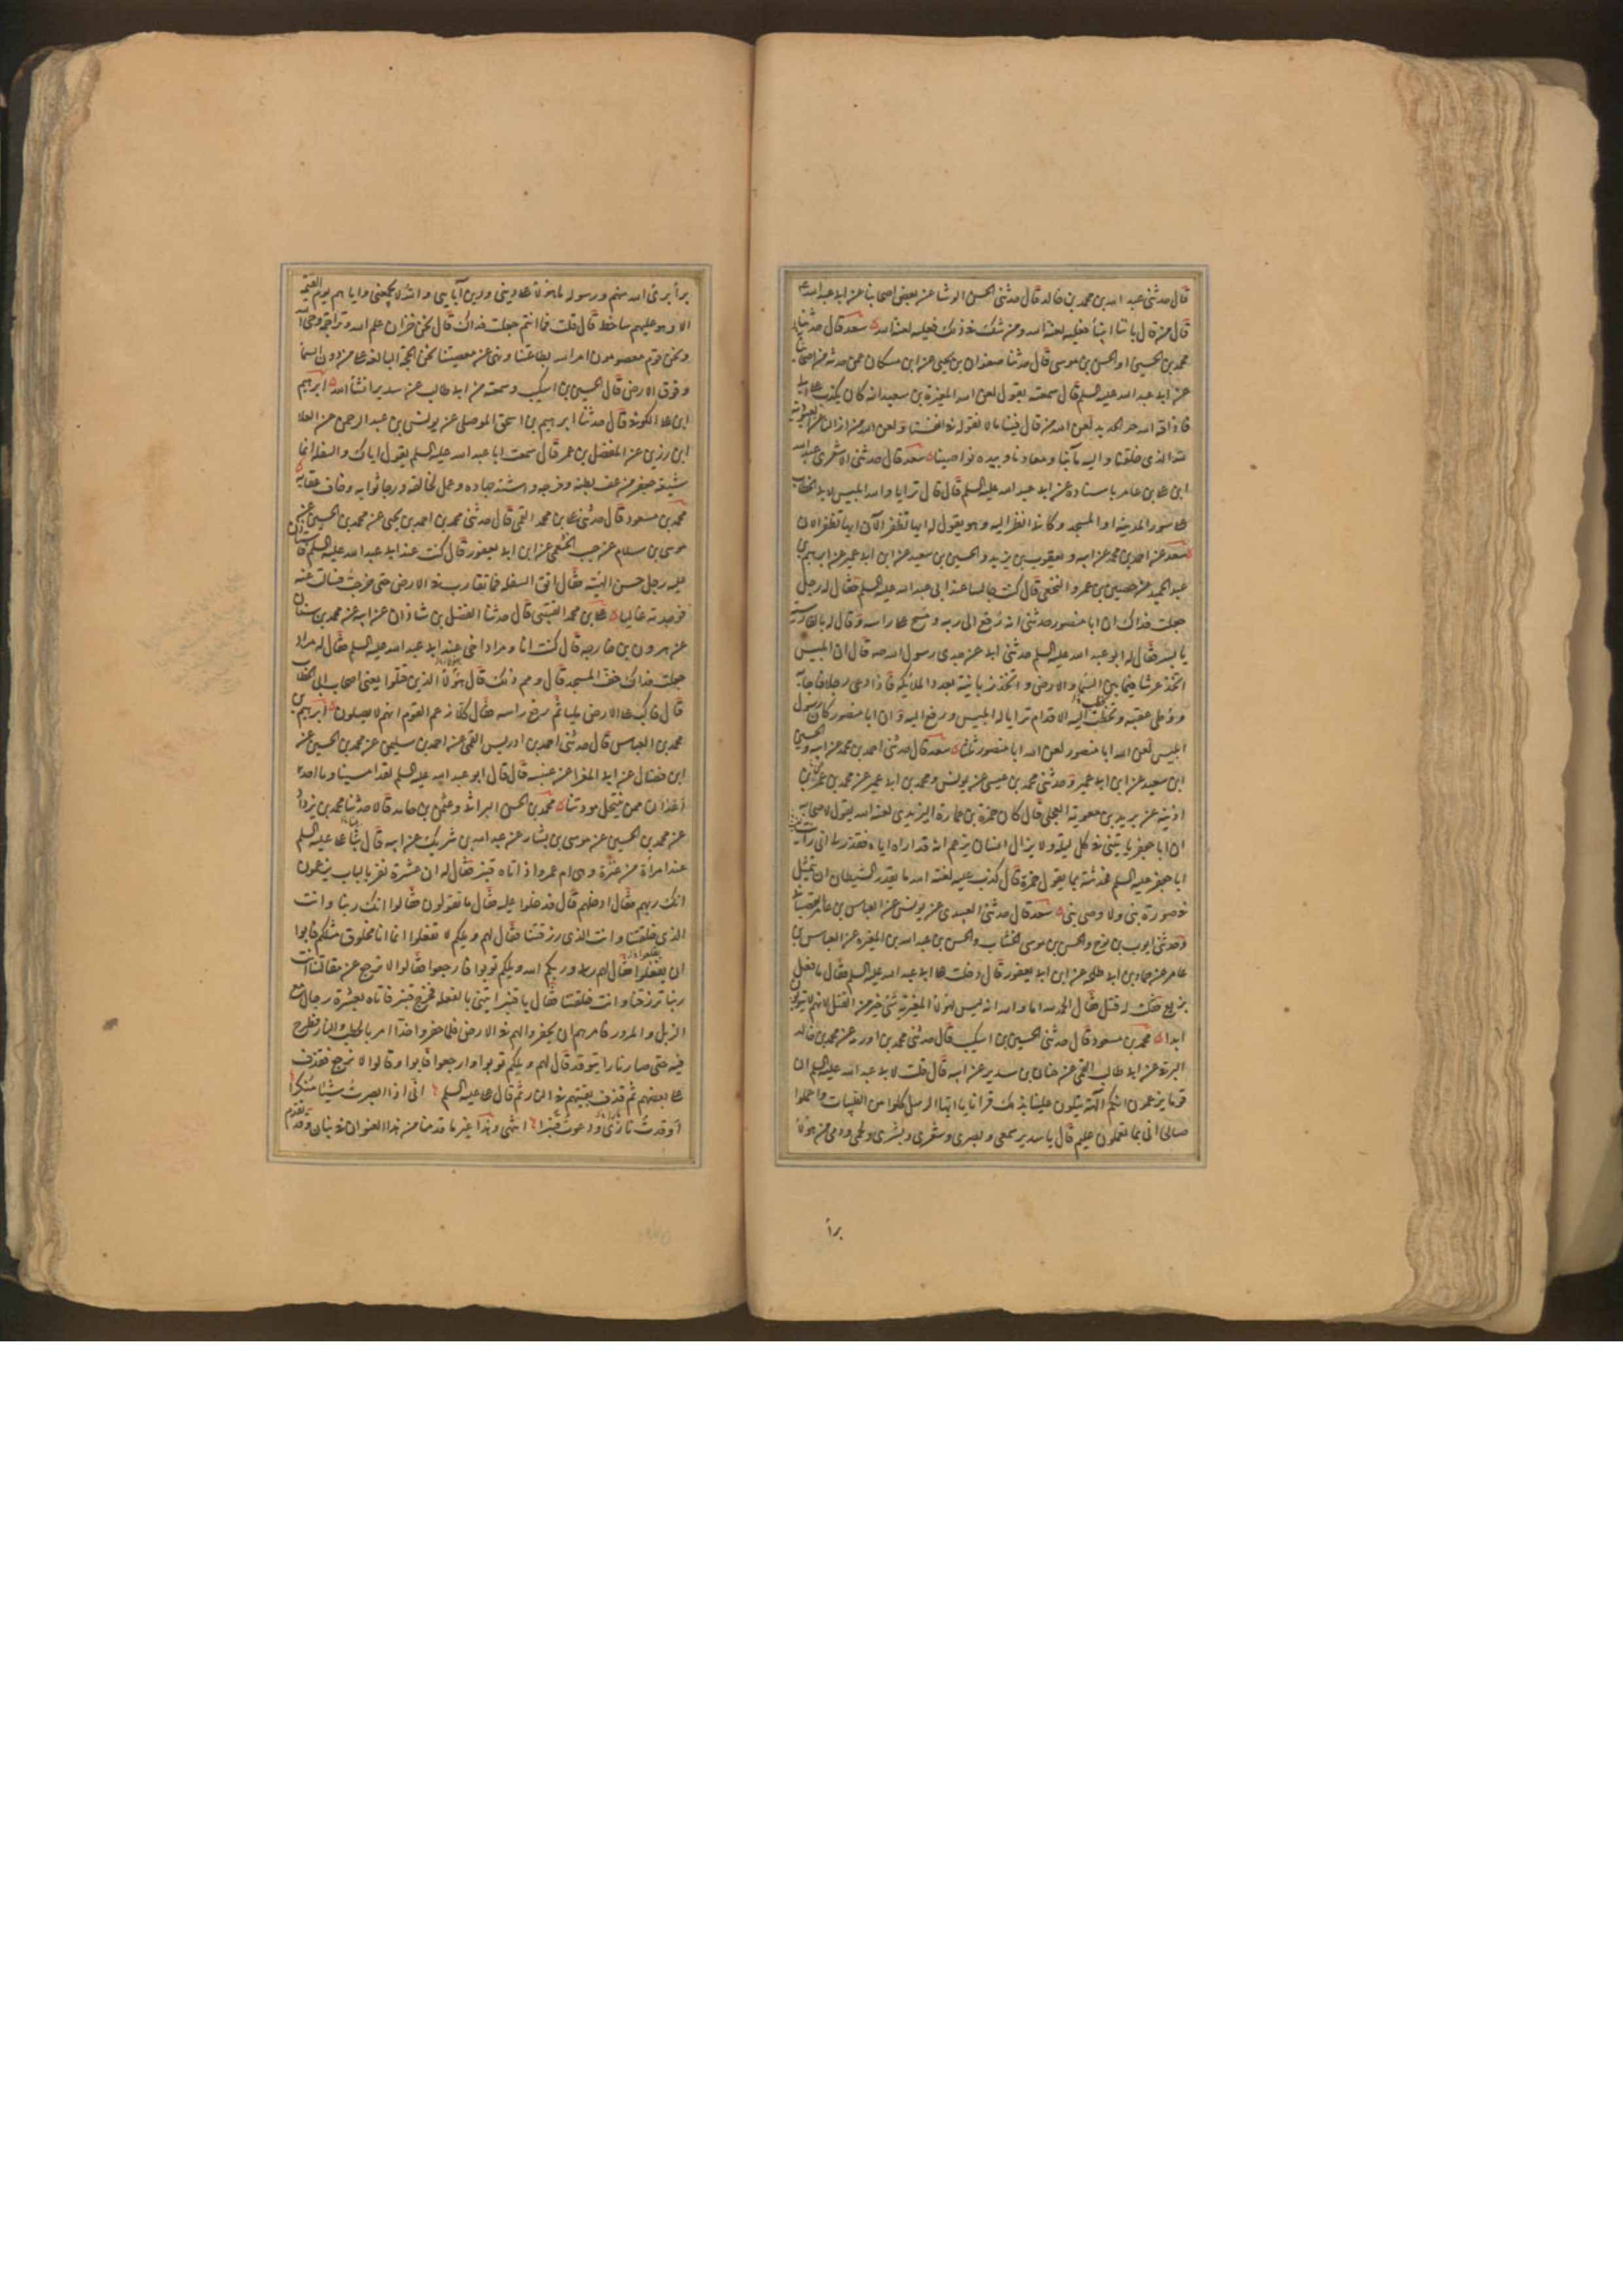 قال حدثنی عبد الله بن محمد بن خالد قال حدثنی الحسن الوشا عن بعض اصحابنا عن ابی عبد الله ع
قال من قال باننا انبیأ فعلیه لعنة الله ومن شک فی ذلک فعلیه لعنة الله سعد قال حدثنا
محمد بن الحسین والحسن بن موسی قال حدثنا صفوان بن یحیی عن ابن مسکان عمن حدثه من اصحابنا
عن ابی عبد الله علیه السلم قال سمعته یقول لعن الله المغیرة بن سعید انه کان یکذب علی ابی
فاذاقه الله حر الحدید لعن الله من قال فینا ما لا نقوله فی انفسنا ولعن الله من ازالنا عن العبودیة
لله الذی خلقنا والیه مآبنا ومعادنا وبیده نواصینا سعد قال حدثنی الاشعری عبد الله
ابن علی بن عامر باسناده عن ابی عبد الله علیه السلم قال قال ترایا والله ابلیس لابی الخطاب
علی سور المدینة او المسجد وکانی انظر الیه وهو یقول له ایها تظفر الآن ایها تظفر الان
سعد عن احمد بن محمد عن ابیه ویعقوب بن یزید والحسین بن سعید عن ابن ابی عمیر عن ابراهیم بن
عبد الحمید عن حصین بن عمرو النخعی قال کنت جالسا عند ابی عبد الله علیه السلم فقال له رجل
جعلت فداک ان ابا منصور حدثنی انه رفع الی ربه ومسح علی راسه وقال له بالفارسیة
یا پسر فقال له ابو عبد الله علیه السلم حدثنی ابی عن جدی رسول الله صه قال ان ابلیس
اتخذ عرشا فیما بین السما والارض واتخذ زبانیة بعدد الملائکة فاذا دعی رجلا فاجابه
ووطی عقبه وتخطت الیه الاقدام ترایا له ابلیس ورفع الیه وان ابا منصور کان رسول
ابلیس لعن الله ابا منصور لعن الله ابا منصور ثلثا سعد قال حدثنی احمد بن محمد عن ابیه والحسین
ابن سعید عن ابن ابی عمیر وحدثنی محمد بن عیسی عن یونس ومحمد بن ابی عمیر عن محمد بن عمر بن
اذینة عن برید بن معویة العجلی قال کان حمزة بن عمارة الیزیدی لعنه الله یقول لاصحابه
ان ابا جعفر یاتینی فی کل لیلة ولا یزال انسان یزعم انه قد اراه ایاه فقدر لی انی رایت
ابا جعفر علیه السلم فحدثته بما یقول حمزة قال کذب علیه لعنة الله ما یقدر الشیطان ان یتمثل
فی صورة نبی ولا وصی نبی سعد قال حدثنی العبیدی عن یونس عن العباس بن عامر القصبانی
وحدثنی ایوب بن نوح والحسن بن موسی الخشاب والحسن بن عبد الله بن المغیرة عن العباس بن
عامر عن حماد بن ابی طلحة عن ابن ابی یعفور قال دخلت علی ابی عبد الله علیه السلم فقال ما فعل
بزیع فقلت له قتل فقال الحمد لله اما والله انه لیس لهؤلا المغیریة شئ خیر من القتل لانهم لا یتوبون
ابدا محمد بن مسعود قال حدثنی الحسین بن اسکیب قال حدثنی محمد بن اورمة عن محمد بن خالد
البرقی عن ابی طالب القمی عن حنان بن سدیر عن ابیه قال قلت لابی عبد الله علیه السلم ان
قوما یزعمون انکم آلهة یتلون علینا بذلک قرانا یا ایها الرسل کلوا من الطیبات واعملوا
صالحا انی بما تعملون علیم قال یا سدیر سمعی وبصری وشعری وبشری ولحمی ودمی من هؤلا
برأ
برأ برئ الله منهم ورسوله ما هؤلا علی دینی ودین آبایی والله لا یجمعنی وایاهم یوم القیمة
الا وهو علیهم ساخط قال قلت فما انتم جعلت فداک قال نحن خزان علم الله وتراجمة وحی الله
ونحن قوم معصومون امر الله بطاعتنا ونهی عن معصیتنا نحن الحجة البالغة علی من دون السما
وفوق الارض قال الحسین بن اسکیب وسمعته من ابی طالب عن سدیر انشأ الله ابراهیم
ابن علی الکوفی قال حدثنا ابراهیم بن اسحق الموصلی عن یونس بن عبد الرحمن عن العلا
ابن رزین عن المفضل بن عمر قال سمعت ابا عبد الله علیه السلم یقول ایاک والسفلة انما
شیعة جعفر من عف بطنه وفرجه واشتد جهاده وعمل لخالقه ورجا ثوابه وخاف عقابه
محمد بن مسعود قال حدثنی علی بن محمد القمی قال حدثنی محمد بن احمد بن یحیی عن محمد بن الحسین عن
موسی بن سلام عن حبیب الخثعمی عن ابن ابی یعفور قال کنت عند ابی عبد الله علیه السلم فاستاذن
علیه رجل حسن الهیئة فقال اتق السفلة فما تقارب فی الارض حتی خرجت فسالت عنه
فوجدته غالیا علی بن محمد القتیبی قال حدثنا الفضل بن شاذان عن ابیه عن محمد بن سنان
عن هرون بن خارجة قال کنت انا ومراد اخی عند ابی عبد الله علیه السلم فقال له مراد
جعلت فداک خف المسجد قال ومم ذلک قال بهؤلا الذین قتلوا یعنی اصحاب ابی الخطاب
قال فاکب علی الارض ملیا ثم رفع راسه فقال کلا زعم القوم انهم لا یصلون ابراهیم بن
محمد بن العباس قال حدثنی احمد بن ادریس القمی عن احمد بن سلیمن عن محمد بن الحسین عن
ابن فضال عن ابی المغرا عن عنبسة قال قال ابو عبد الله علیه السلم لقد امسینا وما احد
اعدا لنا ممن ینتحل مودتنا محمد بن الحسن البراثی وعثمن بن حامد قالا حدثنا محمد بن یزداد
عن محمد بن الحسین عن موسی بن بشار عن عبد الله بن شریک عن ابیه قال بینا علی علیه السلم
عند امراة من عنزة وهی ام عمرو اذ اتاه قنبر فقال له ان عشرة نفر بالباب یزعمون
انک ربهم فقال ادخلهم قال فدخلوا علیه فقال ما تقولون فقالوا انک ربنا وانت
الذی خلقتنا وانت الذی رزقتنا فقال لهم ویلکم لا تفعلوا انما انا مخلوق مثلکم فابوا
ان یفعلوا فقال لهم ربی وربکم الله ویلکم توبوا فارجعوا فقالوا لا نرجع عن مقالتنا انت
ربنا ترزقنا وانت خلقتنا فقال یا قنبر ایتنی بالفعلة فخرج قنبر فاتاه بعشرة رجال مع
الزبل والمرور فامرهم ان یحفروا لهم فی الارض فلما حفروا خدا امر بالحطب والنار فطرح
فیه حتی صار نارا یتوقد قال لهم ویلکم توبوا وارجعوا فابوا وقالوا لا نرجع فقذف
علی بعضهم ثم قذف بقیتهم فی النار ثم قال علی علیه السلم انی اذا ابصرت شیئا منکرا
اوقدت ناری ودعوت قنبرا انتهی وهذا غیر ما قدمنا من هذا العنوان فی بنان وتقدم